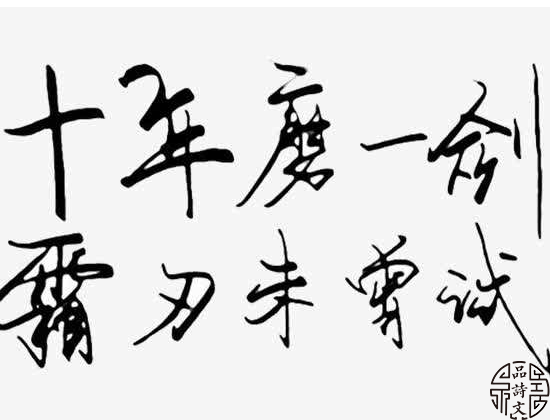 十年磨一剑
霜刃未曾试
品詩文